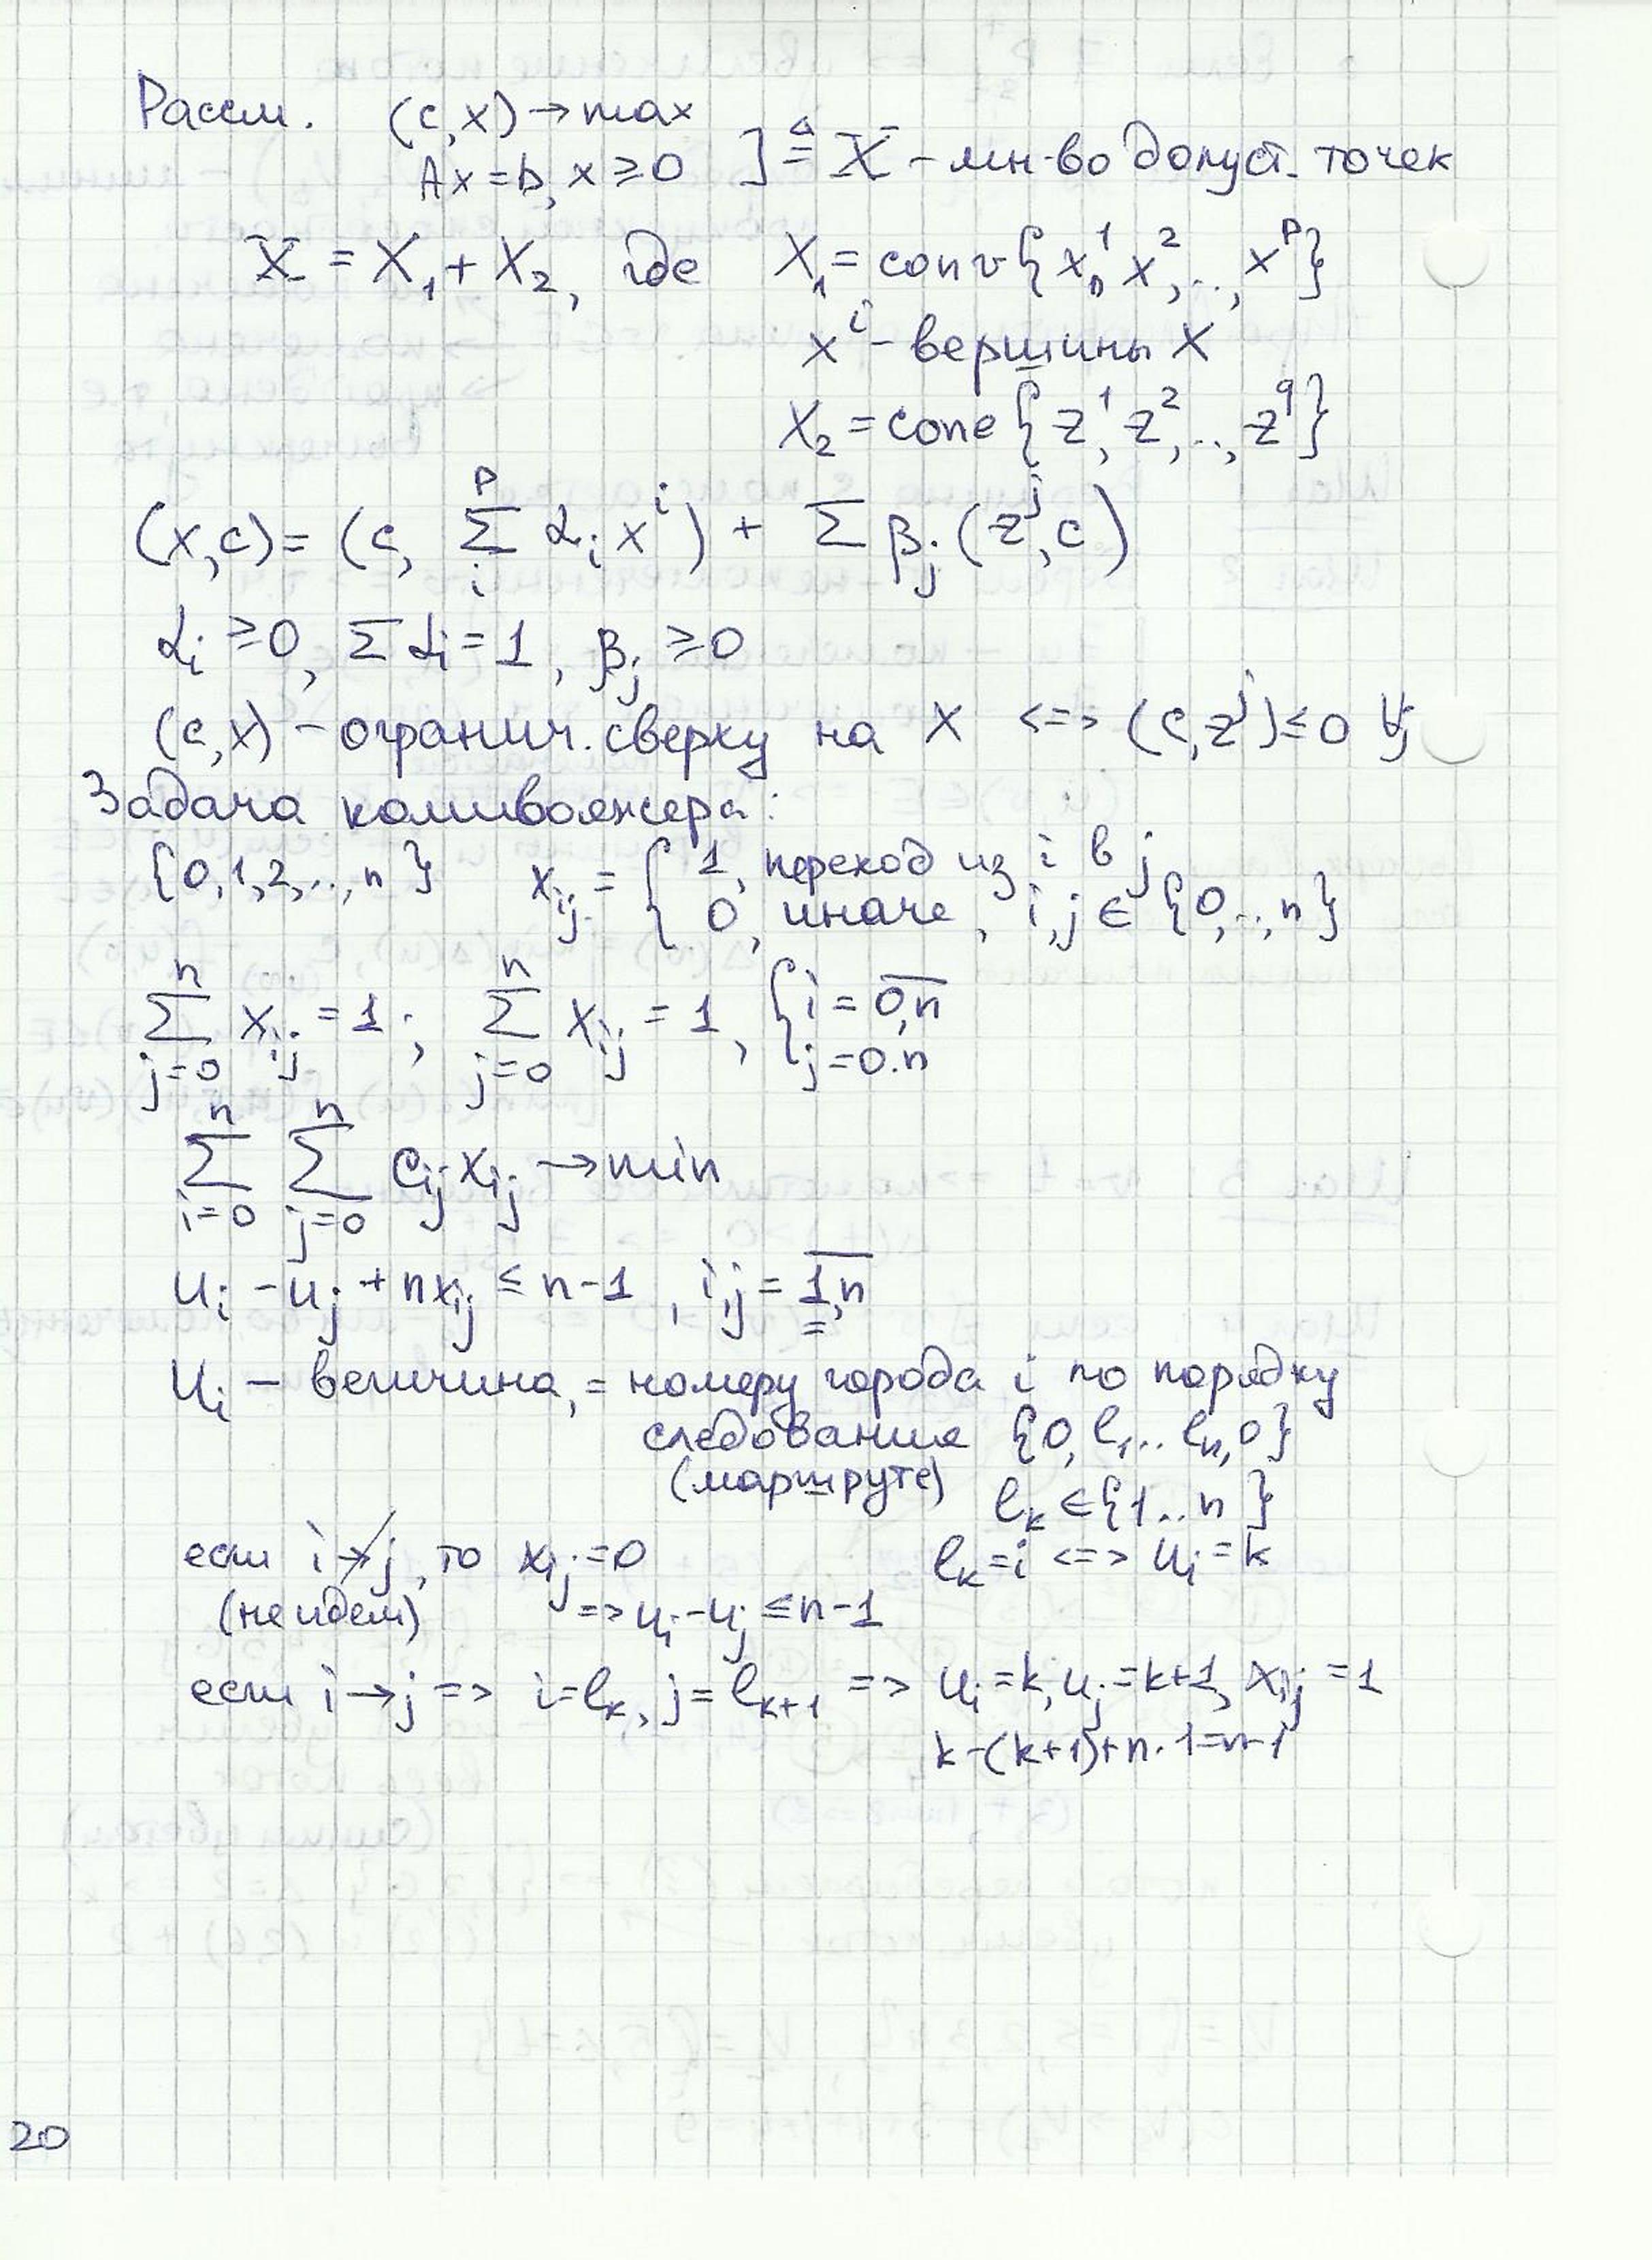 Рассм. (c,x)→max
Ax=b, x≥0 ] ≜ X – мн-во допуст. точек
X = X₁ + X₂, где X₁ = conv{x¹, x²,.., xᵖ}
xⁱ – вершины X
X₂ = cone{z¹, z²,.., z^q}
(x,c) = (c, ∑ᵢᵖ αᵢ xⁱ) + ∑ βⱼ (zʲ, c)
αᵢ ≥ 0, ∑ αᵢ = 1, βⱼ ≥ 0
(c,x) – огранич. сверху на X <=> (c,zʲ) ≤ 0 ∀j
Задача коммивояжера:
{0,1,2,..,n} xᵢⱼ = { 1, переход из i в j
0, иначе, i,j ∈ {0,..,n}
∑_{j=0}^{n} xᵢⱼ = 1; ∑_{j=0}^{n} xᵢⱼ = 1, { i = 0,n
j = 0.n
∑_{i=0}^{n} ∑_{j=0}^{n} cᵢⱼ xᵢⱼ → min
uᵢ – uⱼ + nxᵢⱼ ≤ n-1, i,j = 1,n
uᵢ – величина, = номеру города i по порядку
следования {0, l₁... lₙ, 0}
(маршруте) lₖ ∈ {1..n}
если i↛j, то xᵢⱼ = 0 lₖ = i <=> uᵢ = k
(не идем) => uᵢ – uⱼ ≤ n-1
если i→j => i = lₖ, j = lₖ₊₁ => uᵢ = k, uⱼ = k+1, xᵢⱼ = 1
k-(k+1)+n·1=n-1
20